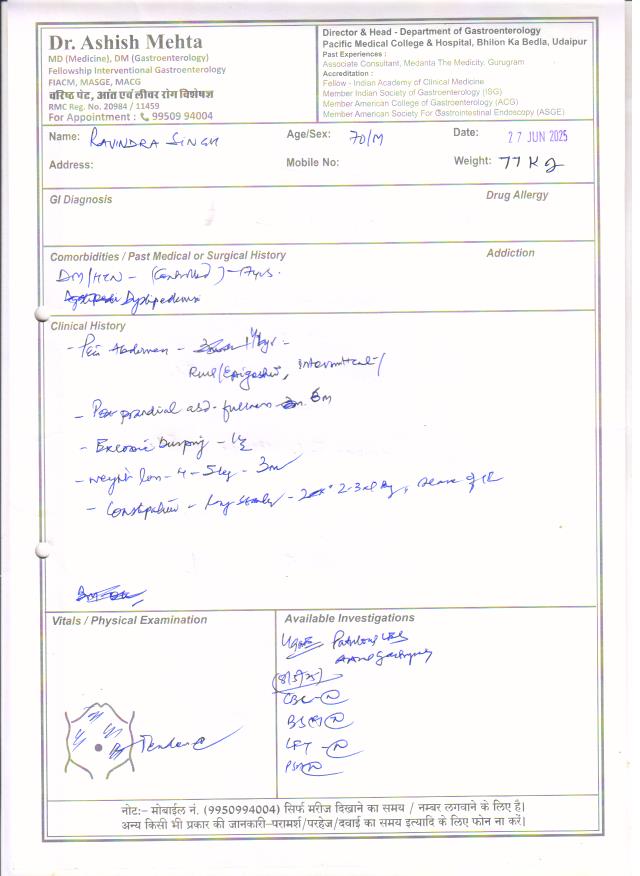 Dr. Ashish Mehta
MD (Medicine), DM (Gastroenterology)
Fellowship Interventional Gastroenterology
FIACM, MASGE, MACG
वरिष्ठ पेट, आंत एवं लीवर रोग विशेषज्ञ
RMC Reg. No. 20984 / 11459
For Appointment : 99509 94004
Director & Head - Department of Gastroenterology
Pacific Medical College & Hospital, Bhilon Ka Bedla, Udaipur
Past Experiences :
Associate Consultant, Medanta The Medicity, Gurugram
Accreditation :
Fellow - Indian Academy of Clinical Medicine
Member Indian Society of Gastroenterology (ISG)
Member American College of Gastroenterology (ACG)
Member American Society For Gastrointestinal Endoscopy (ASGE)
Name: RAVINDRA SINGH Age/Sex: 70/M Date: 27 JUN 2025
Address: Mobile No: Weight: 77 Kg
GI Diagnosis Drug Allergy
Comorbidities / Past Medical or Surgical History Addiction
DM/HTN - (Controlled) -
Clinical History
- Pain Abdomen -
- Post prandial abd. fullness 6m
- burping -
- weight loss - 4 - 5 kg - 3m
- Constipation -
Vitals / Physical Examination
Tender
Available Investigations
CBC - N
LFT - N
नोट:– मोबाईल नं. (9950994004) सिर्फ मरीज दिखाने का समय / नम्बर लगवाने के लिए है।
अन्य किसी भी प्रकार की जानकारी–परामर्श/परहेज/दवाई का समय इत्यादि के लिए फोन ना करें।